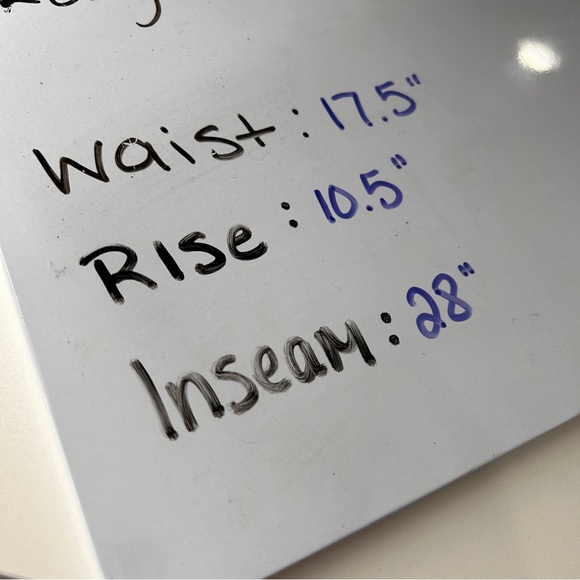 Waist: 17.5"
Rise: 10.5"
Inseam: 28"